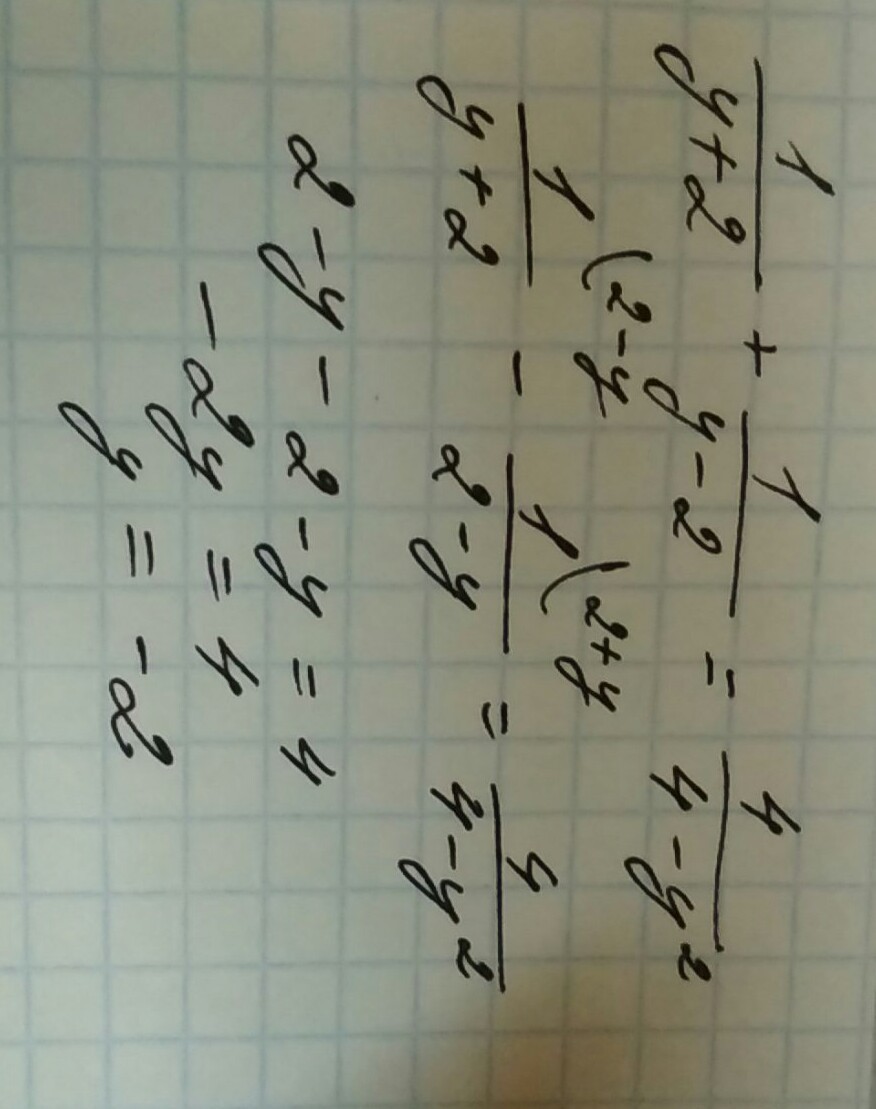 1/(y+2) + 1/(y-2) = 4/(4-y²)
1(2-y/(y+2) - 1(2+y/(2-y) = 4/(4-y²)
2-y-2-y=4
-2y=4
y=-2